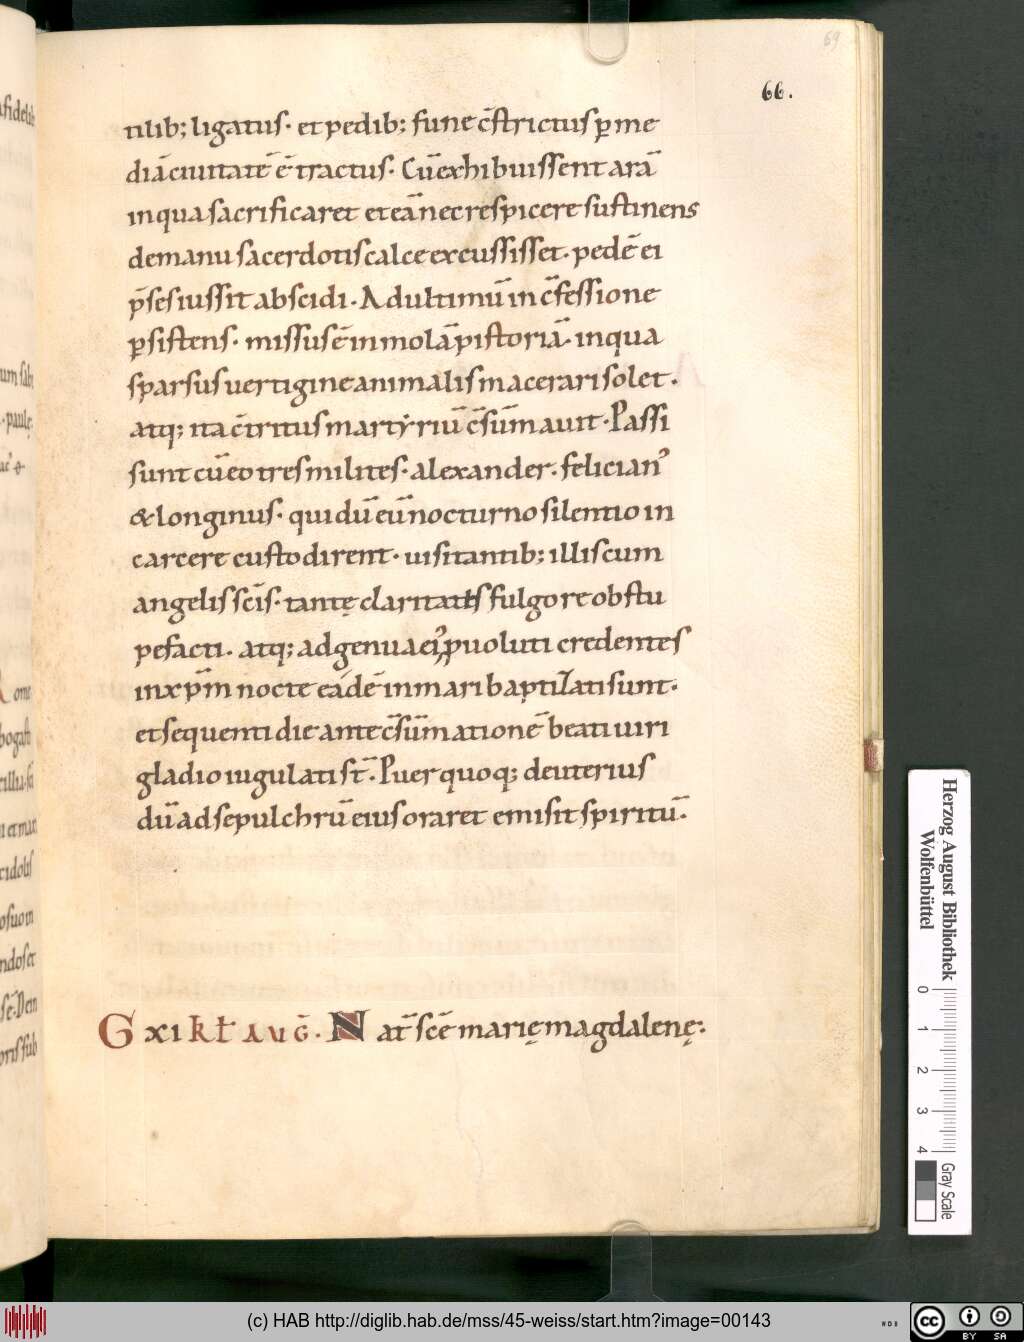 66.
69
tilib; ligatus· et pedib; fune c̄strictus ꝑ me
diā ciuitatē ē tractus· Cū exhibuissent arā
in qua sacrificaret et eā nec respicere sustinens
de manu sacerdotis calce excussisset· pedē ei
p̄ses iussit abscidi· Ad ultimū in c̄fessione
ꝑsistens· missus ē in molā pistoriā· in qua
sparsus uertigine animalis macerari solet·
atq; ita c̄tritus martẏriū c̄sūmauit· Passi
sunt cū eo tres milites· alexander· felician᾽
& longinus· qui dū eū nocturno silentio in
carcere custodirent· uisitantib; illis cum
angelis sc̄is· tantę claritatis fulgore obstu
pefacti· atq; ad genua ei᾽ ꝓuoluti credentes
in xp̄m nocte eādē in mari baptizati sunt·
et sequenti die ante c̄sūmationē beati uiri
gladio iugulati st̄· Puer quoq; deuterius
dū ad sepulchrū eius oraret emisit spiritū·
G xi kł auḡ· Nat̄ sc̄ę marię magdalenę:·
Herzog August Bibliothek
Wolfenbüttel
0 1 2 3 4
Gray Scale
(c) HAB http://diglib.hab.de/mss/45-weiss/start.htm?image=00143
cc BY SA